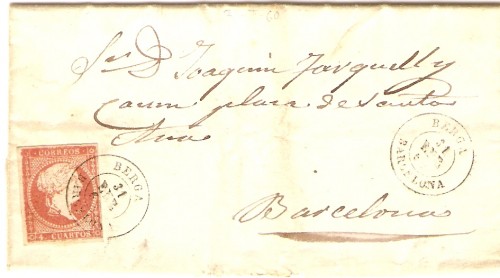 Sr. D. Joaquin
plaza de santa
Ana
Barcelona
CORREOS
4 CUARTOS
BERGA
31
BERGA
31
BARCELONA